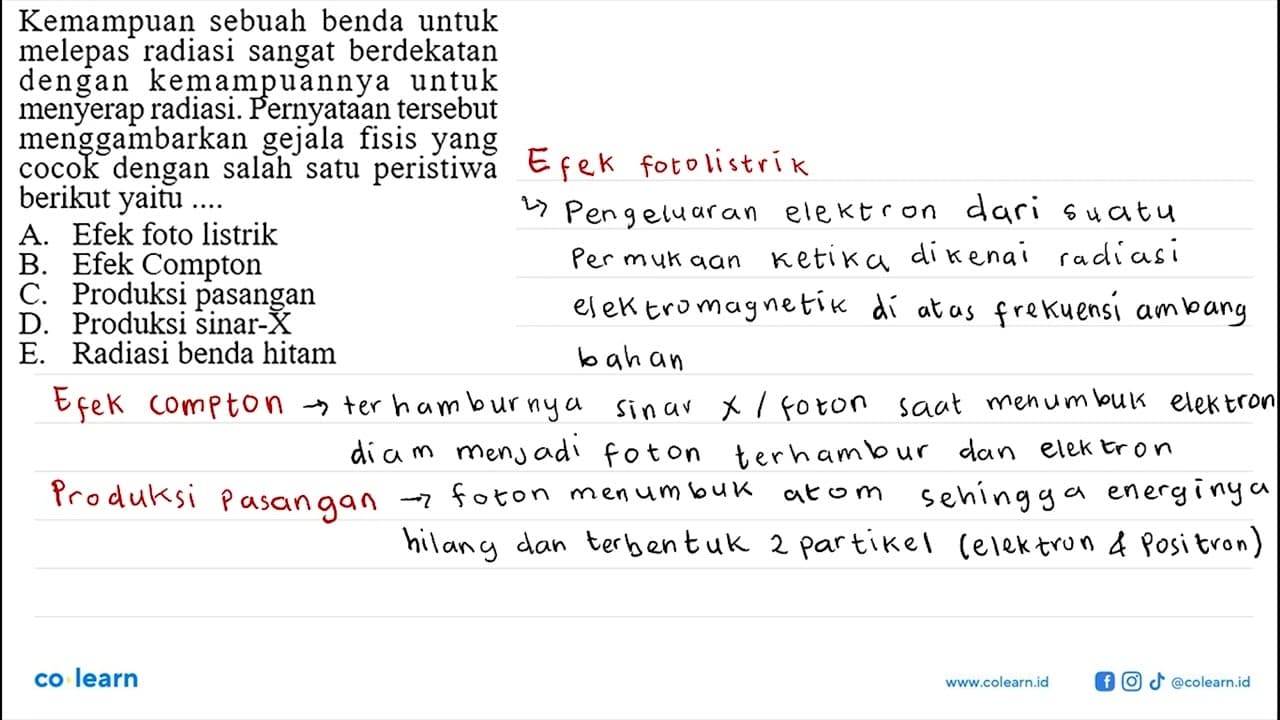 Kemampuan sebuah benda untuk
melepas radiasi sangat berdekatan
dengan kemampuannya untuk
menyerap radiasi. Pernyataan tersebut
menggambarkan gejala fisis yang
cocok dengan salah satu peristiwa
berikut yaitu ....
A. Efek foto listrik
B. Efek Compton
C. Produksi pasangan
D. Produksi sinar-X
E. Radiasi benda hitam
Efek fotolistrik
↳ Pengeluaran elektron dari suatu
Permukaan ketika dikenai radiasi
elektromagnetik di atas frekuensi ambang
bahan
Efek compton → terhamburnya sinar x / foton saat menumbuk elektron
diam menjadi foton terhambur dan elektron
Produksi Pasangan → foton menumbuk atom sehingga energinya
hilang dan terbentuk 2 partikel (elektron & Positron)
co learn
www.colearn.id
@colearn.id